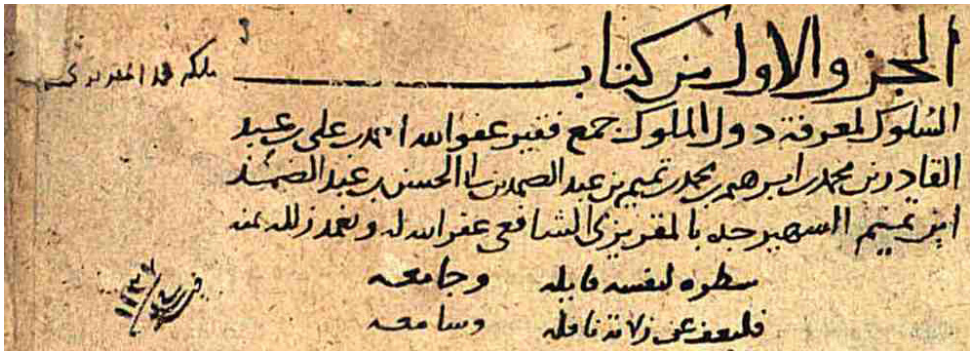 الجزء الاول من كتاب
السلوك لمعرفة دول الملوك جمع فقير عفو الله احمد بن علي بن عبد
القادر بن محمد بن ابرهيم بن محمد بن تميم بن عبد الصمد بن ابي الحسن بن عبد الصمد
ابن تميم الشهير جده بالمقريزي الشافعي عفر الله له وتغمد زلله بمنه
سطره لنفسه قايله وجامعه
فليعف عن زلاته ناقله وسامعه